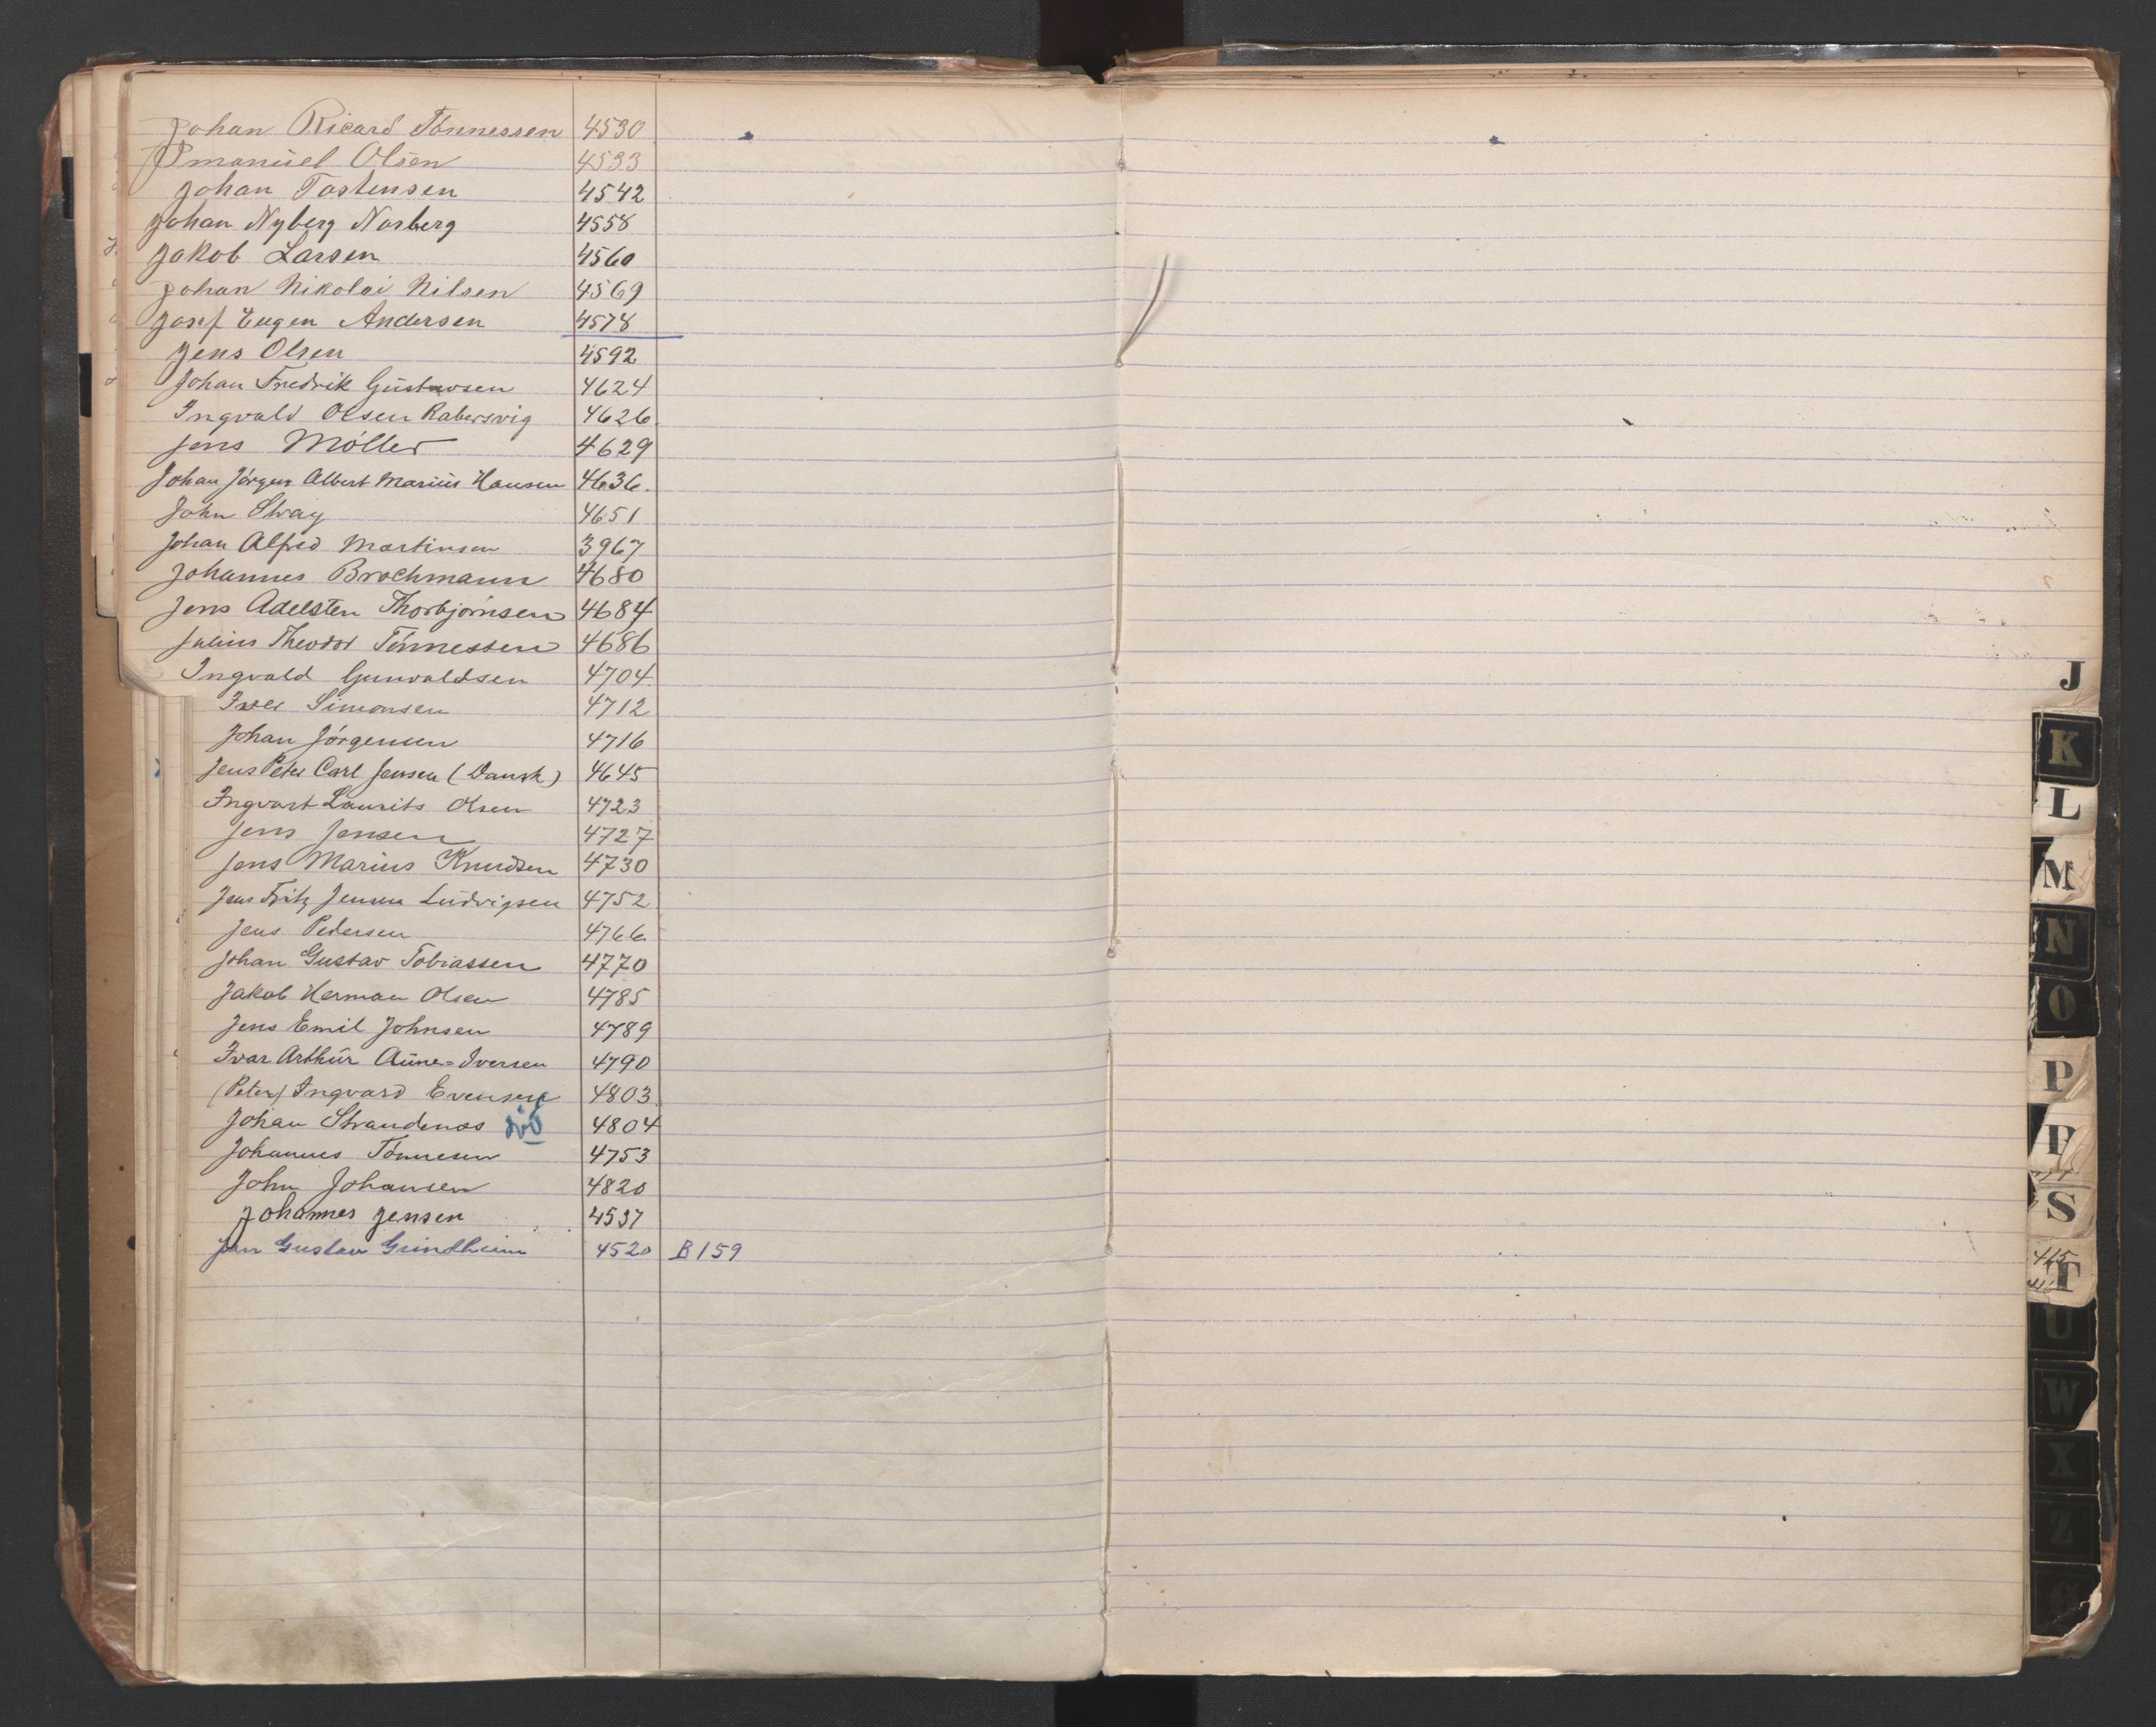 Johan Ricard Tönnessen 4530
Imanuel Olsen 4533
Johan Tostensen 4542
Johan Nyberg Norberg 4558
Jakob Larsen 4560
Johan Nikolai Nilsen 4569
Josef Eugen Andersen 4578
Jens Olsen 4592
Johan Fredrik Gustavsen 4624
Ingvald Olsen Rabersvig 4626
Jens Möller 4629
Johan Jörgen Albert Marius Hansen 4636.
John Stray 4651
Johan Alfred Martinsen 3967
Johannes Brochmann 4680
Jens Adelsten Thorbjørnsen 4684
Julius Theodor Tönnessen 4686
Ingvald Gunvaldsen 4704
Iver Simonsen 4712
Johan Jörgensen 4716
Jens Peter Carl Jensen (Dansk) 4645
Ingvart Laurits Olsen 4723
Jens Jensen 4727
Jens Marius Knudsen 4730
Jens Fritz Jensen Ludvigsen 4752
Jens Pedersen 4766
Johan Gustav Tobiassen 4770
Jakob Herman Olsen 4785
Jens Emil Johnsen 4789
Ivar Arthur Aune=Iversen 4790
(Peter) Ingvard Evensen 4803
Johan Strandenæs 4804
Johannes Tönnesen 4753
John Johansen 4820
Johannes Jensen 4537
Jan Gustav Grindheim 4520 B159
J
K
L
M
N
O
P
P
S
T
U
W
X
Z